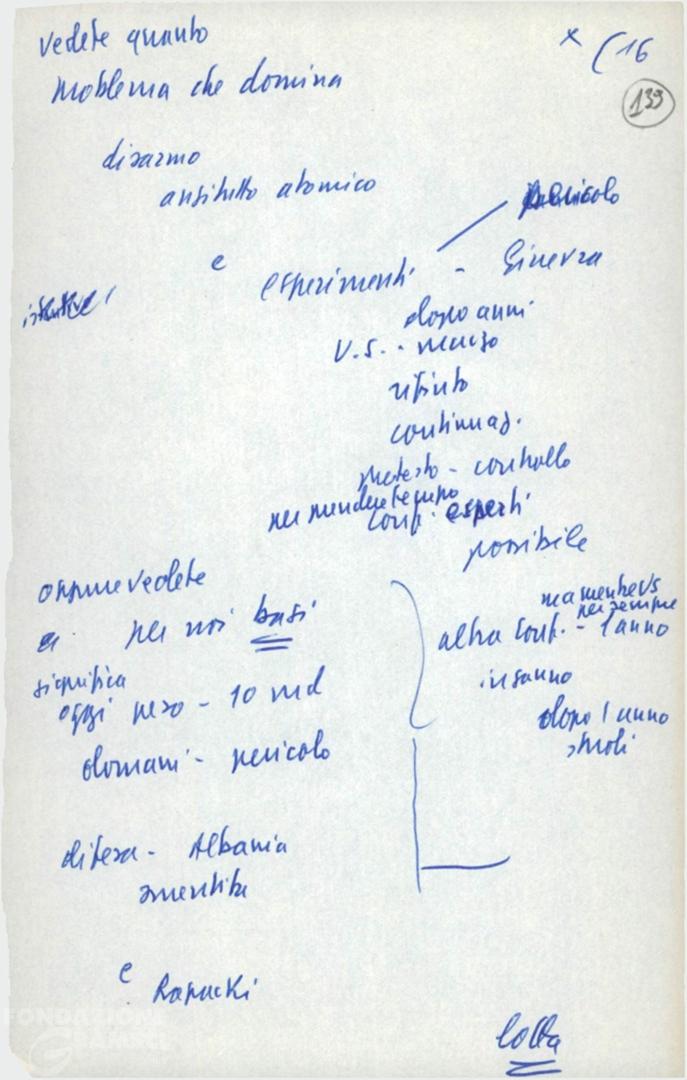 vedete quanto
problema che domina
x (16
139
disarmo
assetto atomico
pericolo
e esperimenti - Ginevra
dopo anni
U.S. - marzo
rifiuto
continuaz.
pretesto - controllo
per prendere tempo
conf. esperti
possibile
oppure vedete
per noi basi
significa
oggi peso - 10 md
domani - pericolo
ma mentre US
per sempre
altra conf. - 1 anno
insanno
dopo 1 anno
difesa - Albania
smentita
e Rapacki
lotta
FONDAZIONE
GRAMSCI